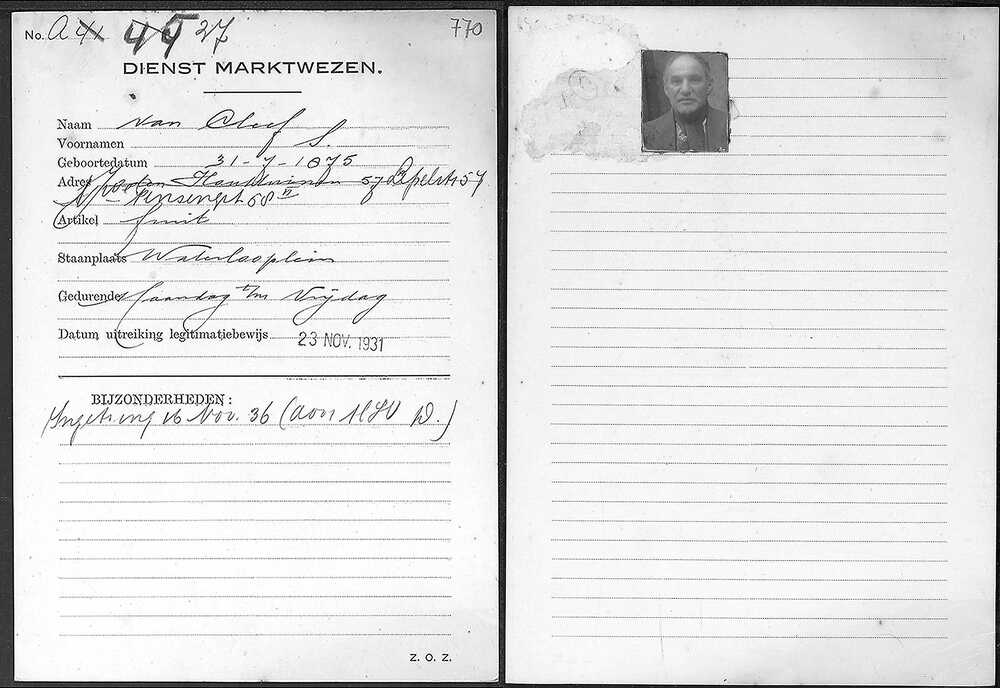 No. A 41 45 27 770
DIENST MARKTWEZEN.
Naam van Cleef
Voornamen S.
Geboortedatum 31-7-1875
Adres Houttuinen 57 Lepelstr 57
68 II
Artikel fruit
Staanplaats Waterlooplein
Gedurende Maandag t/m Vrijdag
Datum uitreiking legitimatiebewijs 23 NOV. 1931
BIJZONDERHEDEN:
Nov. 36
Z. O. Z.